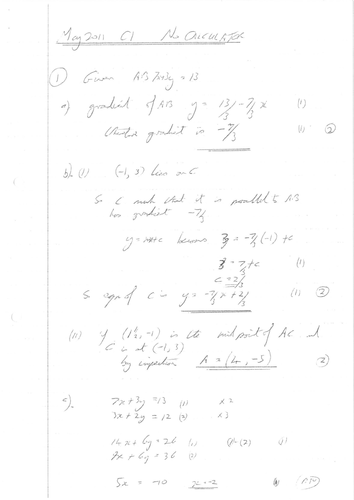 May 2011 C1 No CALCULATER
① Given AB 7x+3y = 13
a) gradient of AB y = 13/3 - 7/3 x (1)
gradient is -7/3 (1) ②
b) (i) (-1, 3) lies on C
So C such that it is parallel to AB
has gradient -7/3
y=mx+c becomes 3 = -7/3(-1) + c
3 = 7/3 + c (1)
c = 2/3
So eqn of C is y = -7/3 x + 2/3 (1) ②
(ii) if (1½, -1) is the midpoint of AC and
C is at (-1, 3)
by inspection A = (4, -5) ②
c). 7x+3y = 13 (1) x2
3x+2y = 12 (2) x3
14x + 6y = 26 (1)
9x + 6y = 36 (2)
5x = -10 x=-2